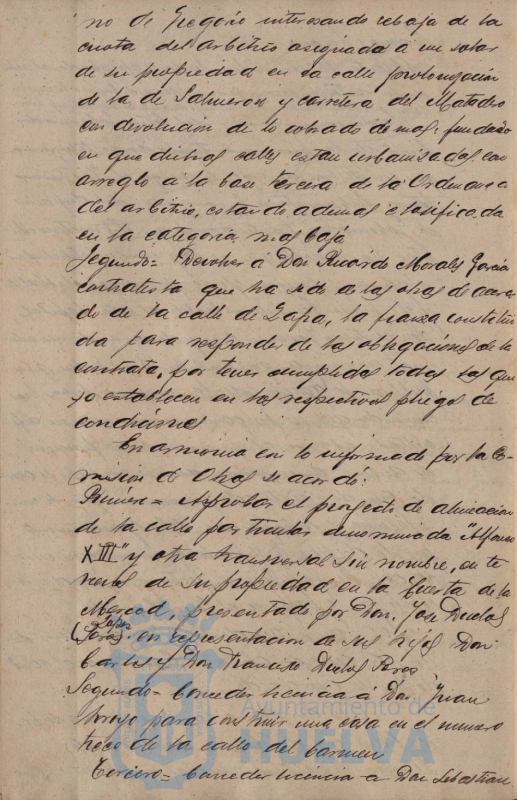 no de Gregorio interesando rebaja de la
cuota del arbitrio asignada á un solar
de su propiedad en la calle prolongación
de la de Salmeron y carretera del Matadero
con devolucion de lo cobrado de mas, fundado
en que dichas calles estan urbanizadas con
arreglo á la base tercera de la Ordenanza
del arbitrio, estando ademas clasificada
en la categoria mas baja
Segundo = Devolver á Don Ricardo Morales Garcia
contratista que ha sido de las obras de acera
do de la calle de Zafra, la fianza constitui
da para responder de las obligaciones de la
contrata, por tener cumplidas todas las que
se establecen en los respectivos pliegos de
condiciones
En armonia con lo informado por la Co-
mision de Obras se acordó:
Primero = Aprobar el proyecto de alineacion
de la calle particular denominada "Alfonso
XIII" y otra transversal sin nombre, en te
rrenos de su propiedad en la Huerta de la
Merced, presentado por Don Jose Duclos
en representacion de sus hijos Don
Carlos y Don Francisco Duclos Peros
Segundo = Conceder licencia á Don Juan
Arroyo para construir una casa en el numero
trece de la calle del Carmen
Tercero = Conceder licencia a Don Sebastian
Ayuntamiento de
HUELVA